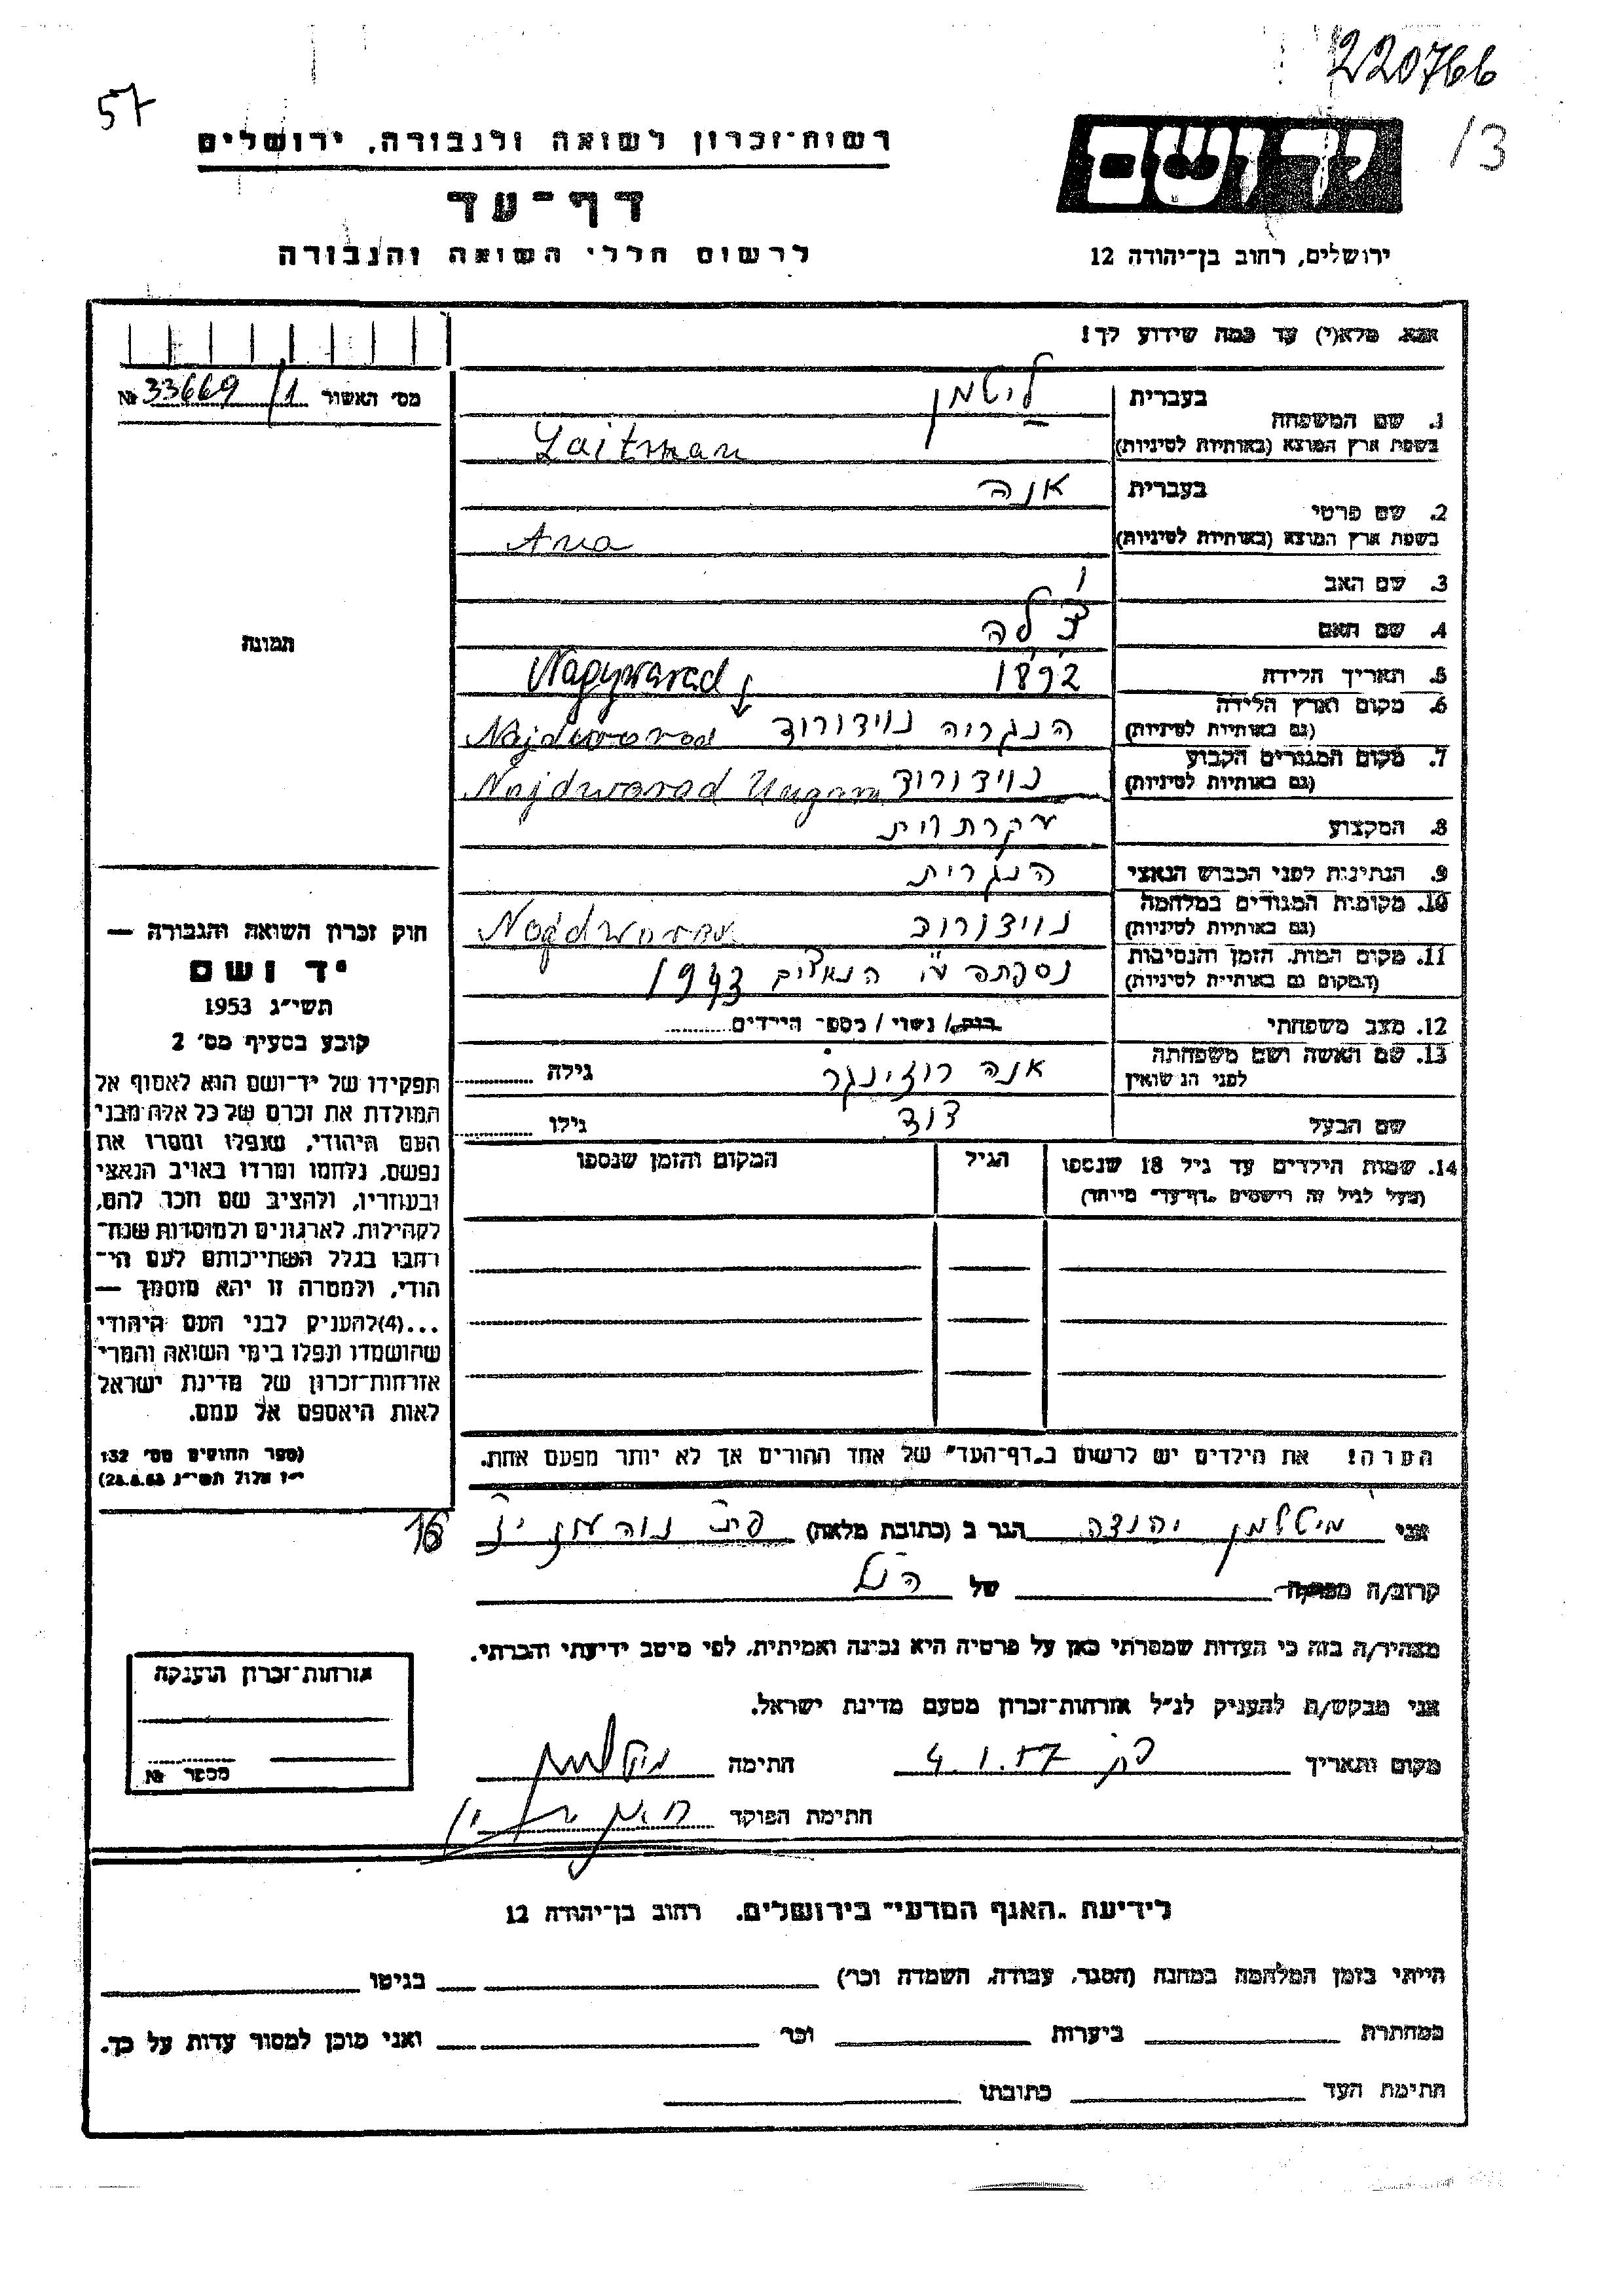 220766
57
13
רשות־זכרון לשואה ולגבורה, ירושלים
יד ושם
דף־עד
ירושלים, רחוב בן־יהודה 12
לרשום חללי השואה והגבורה
אנא, מלא(י) עד כמה שידוע לך!
מס׳ האשור 33669/1 №
1. שם המשפחה
בעברית ליטמן
בשפת ארץ המוצא (באותיות לטיניות) Laitman
2. שם פרטי
בעברית אנה
בשפת ארץ המוצא (באותיות לטיניות) Ana
3. שם האב
4. שם האם
5. תאריך הלידה 1892
Nagywarad
6. מקום וארץ הלידה
(גם באותיות לטיניות) הנגריה נוידורוד Najdworod
7. מקום המגורים הקבוע
(גם באותיות לטיניות) נוידורוד Najdwarad Ungarn
8. המקצוע עקרת בית
9. הנתינות לפני הכבוש הנאצי הנגרית
10. מקומות המגורים במלחמה
(גם באותיות לטיניות) נוידורוד
11. מקום המות, הזמן והנסיבות
(המקום גם באותיות לטיניות) נספתה ע״י הנאצים 1943
12. מצב משפחתי רוק/ נשוי / מספר הילדים
13. שם האשה ושם משפחתה
לפני הנשואין אנה רוזינגר גילה
שם הבעל דוד גילו
14. שמות הילדים עד גיל 18 שנספו
(מעל לגיל זה רושמים „דף־עד״ מיוחד)
הגיל
המקום והזמן שנספו
הערה! את הילדים יש לרשום ב„דף־העד״ של אחד ההורים אך לא יותר מפעם אחת.
תמונה
חוק זכרון השואה והגבורה —
יד ושם
תשי״ג 1953
קובע בסעיף מס׳ 2
תפקידו של יד־ושם הוא לאסוף אל
המולדת את זכרם של כל אלה מבני
העם היהודי, שנפלו ומסרו את
נפשם, נלחמו ומרדו באויב הנאצי
ובעוזריו, ולהציב שם וזכר להם,
לקהילות, לארגונים ולמוסדות שנח־
רבו בגלל השתייכותם לעם הי־
הודי, ולמטרה זו יהא מוסמך —
...(4)להעניק לבני העם היהודי
שהושמדו ונפלו בימי השואה והמרי
אזרחות־זכרון של מדינת ישראל
לאות היאספם אל עמם.
(ספר החוקים מס׳ 132
י״ז אלול תשי״ג 28.8.53)
אני מיטלמן יהודה הגר ב (כתובת מלאה)
16
קרוב/ה של הנ״ל
מצהיר/ה בזה כי העדות שמסרתי כאן על פרטיה היא נכונה ואמיתית, לפי מיטב ידיעתי והכרתי.
אני מבקש/ת להעניק לנ״ל אזרחות־זכרון מטעם מדינת ישראל.
מקום ותאריך 4.1.57 חתימה
חתימת הפוקד
אזרחות־זכרון הוענקה
מספר №
לידיעת „האגף המדעי״ בירושלים, רחוב בן־יהודה 12
הייתי בזמן המלחמה במחנה (הסגר, עבודה, השמדה וכו׳) בגיטו
במחתרת ביערות וכו׳ ואני מוכן למסור עדות על כך.
חתימת העד כתובתו